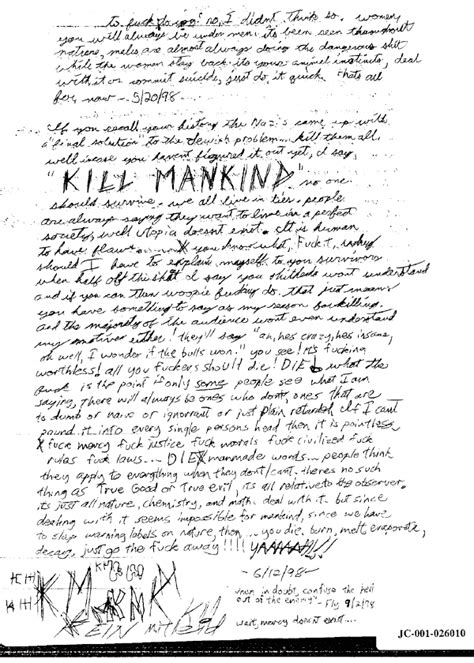 to fuck Saxons! no, I didnt think so. women,
you will always be under men. its been seen throughout
nature, males are almost always doing the dangerous shit
while the women stay back. its your animal instincts, deal
with it or commit suicide, just do it quick. thats all
for now - 5/20/98-
If you recall your history the Nazis came up with
a "final solution" to the Jewish problem... kill them all.
well incase you havent figured it out yet, I say
"KILL MANKIND" no one
should survive. we all live in lies. people
are always saying they want to live in a perfect
society, well utopia doesnt exist. It is human
to have flaws... you know what, Fuck it, why
should I have to explain myself to you survivors
when half of this shit I say you shitheads wont understand
and if you can then woopie fucking do. that just means
you have something to say as my reason for killing.
and the majority of the audience wont even understand
my motives either! they'll say "ah, hes crazy, hes insane,
oh well, I wonder if the bulls won." you see! its fucking
worthless! all you fuckers should die! DIE! what the
fuck is the point if only some people see what I am
saying, there will always be ones who dont, ones that are
to dumb or naive or ignorrant or just plain retarded. If I cant
pound it into every single persons head then it is pointless.
fuck mercy fuck justice fuck morals fuck civilized fuck
rules fuck laws... DIE manmade words... people think
they apply to everything when they dont/cant. theres no such
thing as True Good or True evil, its all relative to the observer.
its just all nature, chemistry, and math. deal with it. but since
dealing with it seems impossible for mankind, since we have
to slap warning labels on nature, then... you die. burn, melt, evaporate,
decay, just go the fuck away!!!! YAAAAAH!!!
-6/12/98-
"when in doubt, confuse the hell
out of the enemy" - Fly 9/2/98
wait, mercy doesnt exist....
KMFDM
JC-001-026010